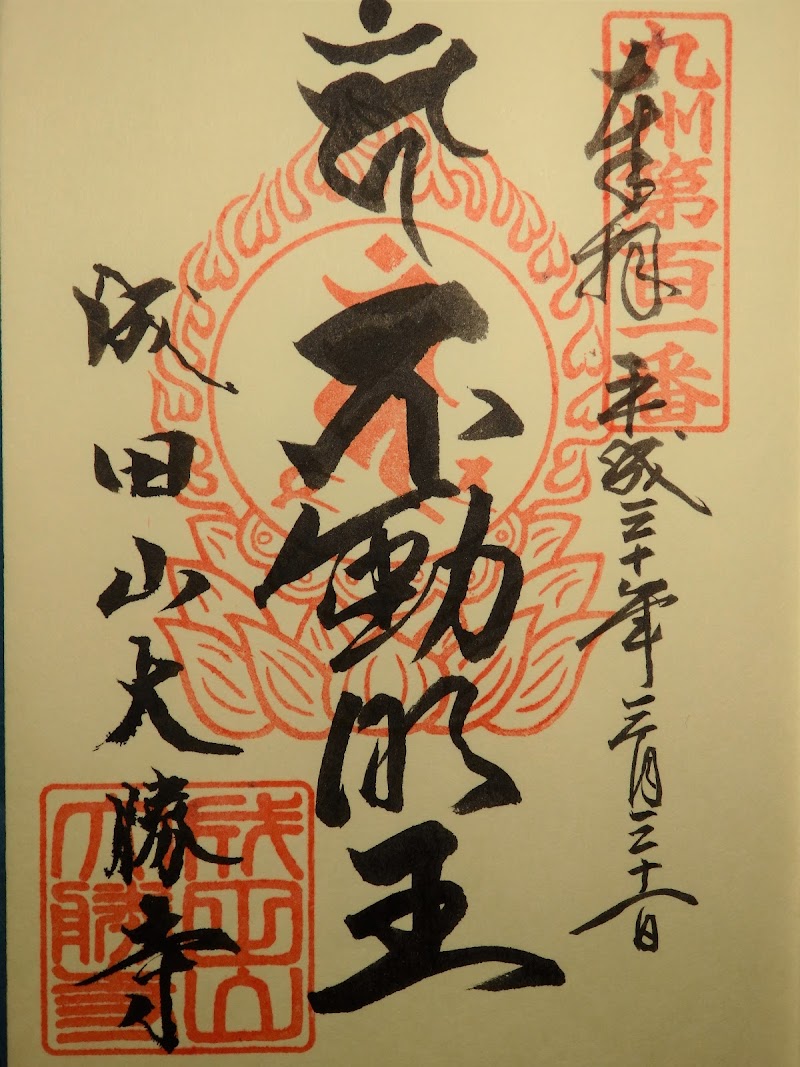 九州第百一番
奉拝 平成三十年三月
不動明王
成田山大勝寺
成田山
大勝寺